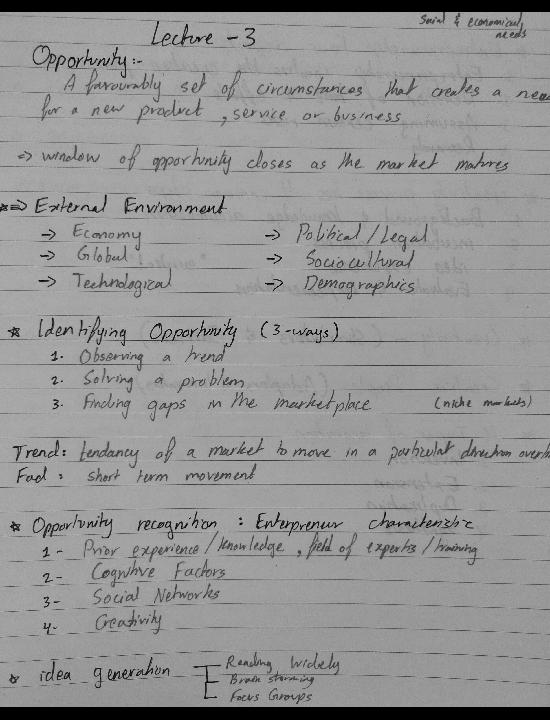 Social & economical
needs
Lecture - 3
Opportunity:-
A favourably set of circumstances that creates a need
for a new product, service or business
=> window of opportunity closes as the market matures
External Environment
-> Economy -> Political / Legal
-> Global -> Sociocultural
-> Technological -> Demographics
* Identifying Opportunity (3-ways)
1. Observing a trend
2. Solving a problem
3. Finding gaps in the marketplace (niche markets)
Trend: tendancy of a market to move in a particular direction
Fad: short term movement
* Opportunity recognition : Enterpreneur characteristic
1- Prior experience/knowledge, field of expertis / training
2- Cognitive Factors
3- Social Networks
4- Creativity
* idea generation
Reading widely
Brain storming
Focus Groups